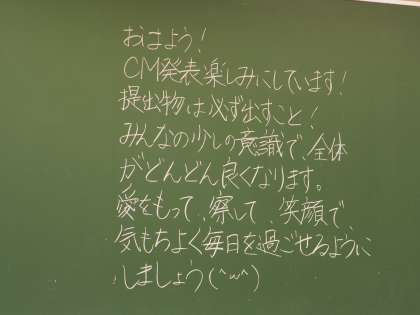 おはよう!
CM発表楽しみにしています!
提出物は必ず出すこと!
みんなの少しの意識で、全体
がどんどん良くなります。
愛をもって、察して、笑顔で、
気もちよく毎日を過ごせるように
しましょう(^w^)